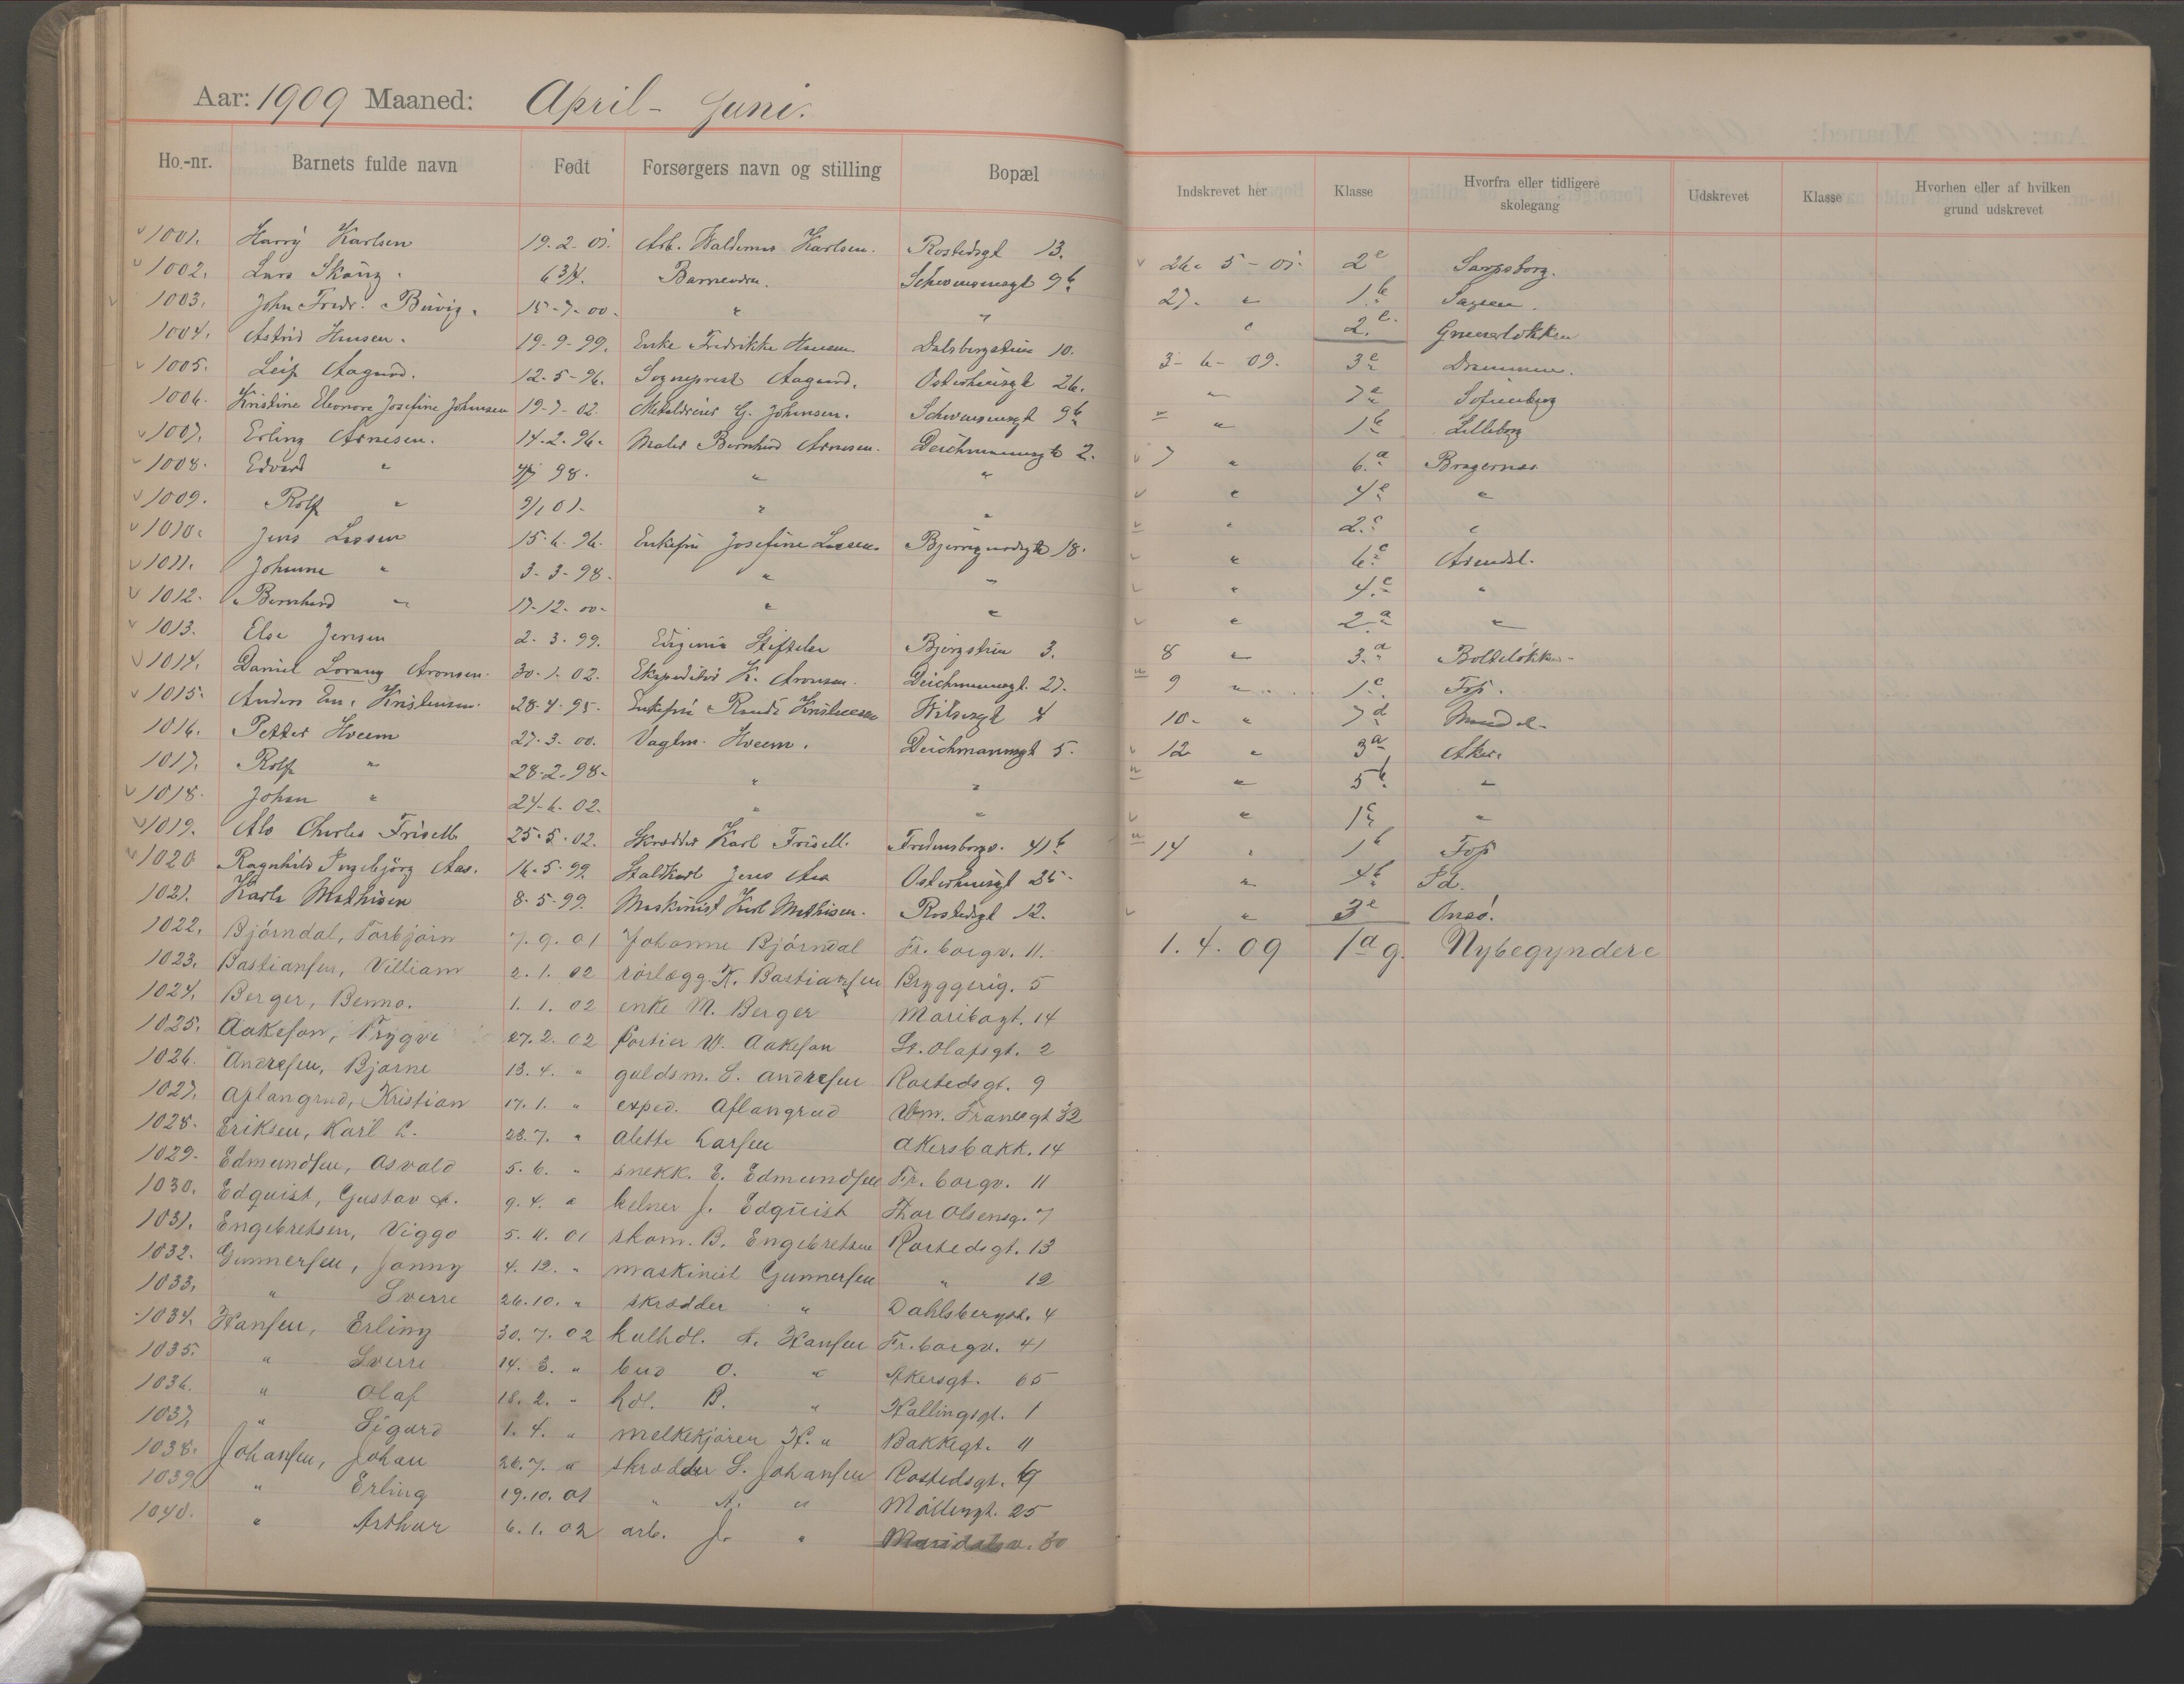 Aar: 1909 Maaned: April - Juni.
Ho.-nr. Barnets fulde navn Født Forsørgers navn og stilling Bopæl
Indskrevet her Klasse Hvorfra eller tidligere skolegang Udskrevet Klasse Hvorhen eller af hvilken grund udskrevet
1001. Harry Karlsen 19-2-01. Arb. Valdemar Karlsen. Rostedsgt 13. 26. 5-01. 2e Sarpsborg.
1002. Lars 6 3/4. Schwensensgt 9b 27. " 1b Sagene.
1003. John Fredr. 15-7-00. " " " 2e. Grünerløkken
1004. Astrid Hansen. 19-9-99. Enke Fredrikke Hansen Dalsbergstien 10. 3-6-09. 3e Drammen.
1005. Leif Aagaard. 12-5-96. Sogneprest Aagaard. Osterhausgt 26. " 7a Sofienberg
1006. Kristine Eleonore Josefine Johnsen 19-7-02. G. Johnsen. Schwensensgt 9b " 1b Lilleborg
1007. Erling Arnesen. 14-2-96. Maler Bernhard Arnesen. Deichmannsgt 2. 7 " 6.a Bragernes
1008. Edvard " 98. " " " 4e "
1009. Rolf " 01. " " " 2.c "
1010. Jens Larsen 15-6-96. Enkefru Josefine Larsen. 18. " 6c Arendal.
1011. Johanne " 3-3-98. " " " 4.c "
1012. Bernhard " 17-12-00. " " " 2.a "
1013. Else Jensen 2-3-99. Eugenia Stiftelse Bjergstien 3. 8 " 3.a Bolteløkken
1014. Daniel Lorang Aronsen. 30-1-02. Ekspeditør K. Aronsen. Deichmannsgt. 27. 9 " 1c. Fop.
1015. Anders Em. Kristensen. 28-4-95. Enkefru Kristensen Wilsesgt 4 10. " 7d
1016. Petter Hveem 27-3-00. Vagtm. Hveem. Deichmannsgt 5. 12 " 3a Aker.
1017. Rolf " 28-2-98. " " " 5b. "
1018. Johan " 24-6-02. " " " 1c "
1019. Alo Charles Frisell 25-5-02. Skrædder Karl Frisell. Fredensborgv. 41b 14 " 1b Fop
1020 Ragnhild Ingebjörg Aas. 16-5-99. Staldkarl Jens Aas Osterhausgt 25. " 4b Id.
1021. Karla Mathisen 8-5-99. Maskinist Karl Mathisen. Rostedsgt 12. " 3e Onsö.
1022. Björndal, Torbjörn 7.9.01 Johanne Björndal Fr.borgv. 11. 1.4.09 1a g. Nybegyndere
1023. Bastiansen, Villiam 2.1.02 rörlægg. K. Bastiansen Bryggerig. 5
1024. Berger, Benno. 1.1.02 enke M. Berger Maribogt. 14
1025. Aakeson, Trygve 27.2.02 Portier W. Aakeson St. Olafsgt. 2
1026. Andresen, Bjarne 13.4. " guldsm. S. Andresen Rostedsgt. 9
1027. Aflangrud, Kristian 17.1. " exped. Aflangrud Wm. Tranesgt 52
1028. Eriksen, Karl L. 23.7. " Alette Larsen Akersbakk. 14
1029. Edmundsen, Osvald 5.6. " snekk. E. Edmundsen Fr.borgv. 11
1030. Edquist, Gustav A. 9.4. " kelner J. Edquist Thor Olsensg. 7
1031. Engebretsen, Viggo 5.11.01 skom. B. Engebretsen Rostedsgt. 13
1032. Gunnersen, Jonny 4.12. " maskinist Gunnersen " 12
1033. " Sverre 26.10. " skrædder " Dahlsbergst. 4
1034. Hansen, Erling 30.7.02 kulhdl. A. Hansen Fr.borgv. 41
1035. " Sverre 14.3. " bud O. " Akersgt. 65
1036. " Olaf 18.2. " hdl. B. " Hallingsgt. 1
1037. " Sigurd 1.4. " melkekjører H. " Bakkegt. 11
1038. Johansen, Johan 26.7. " skrædder S. Johansen Rostedsgt. 9
1039. " Erling 19.10.01 " A. " Möllergt. 25
1040. " Arthur 6.1.02 arb. J. " Maridalsv. 80